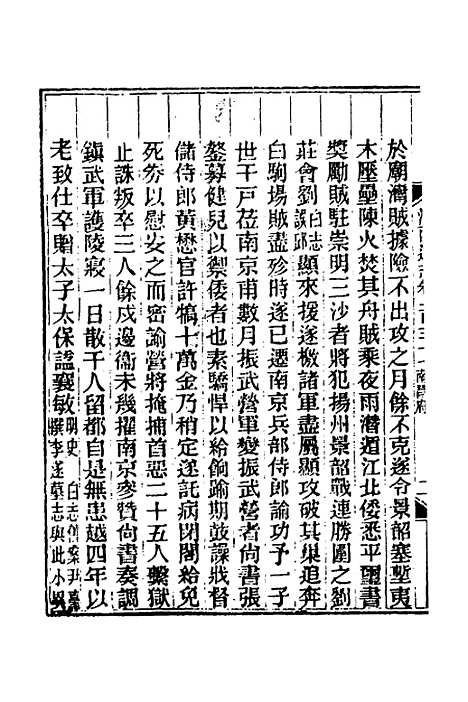 於廟灣賊據險不出攻之月餘不克遂令景韶塞塹夷
木壓壘陳火焚其舟賊乘夜雨潛遁江北倭悉平璽書
獎勵賊駐崇明三沙者將犯揚州景韶戰連勝圍之劉
莊會劉白志誤邱顯來援遂檄諸軍盡屬顯攻破其巢追奔
白駒場賊盡殄時遂已遷南京兵部侍郎論功予一子
世千戸莅南京甫數月振武營軍變振武營者尚書張
鏊募健兒以禦倭者也素驕悍以給餉踰期鼓譟戕督
儲侍郎黃懋官許犒十萬金乃稍定遂託病閉閣給免
死劵以慰安之而密諭營將掩捕首惡二十五人繫獄
止誅叛卒三人餘戍邊衞未幾擢南京參贊尚書奏調
鎮武軍護陵寢一日散千人留都自是無患越四年以
老致仕卒贈太子太保諡襄敏明史 白志傳案尹臺撰李遂墓志與此小異